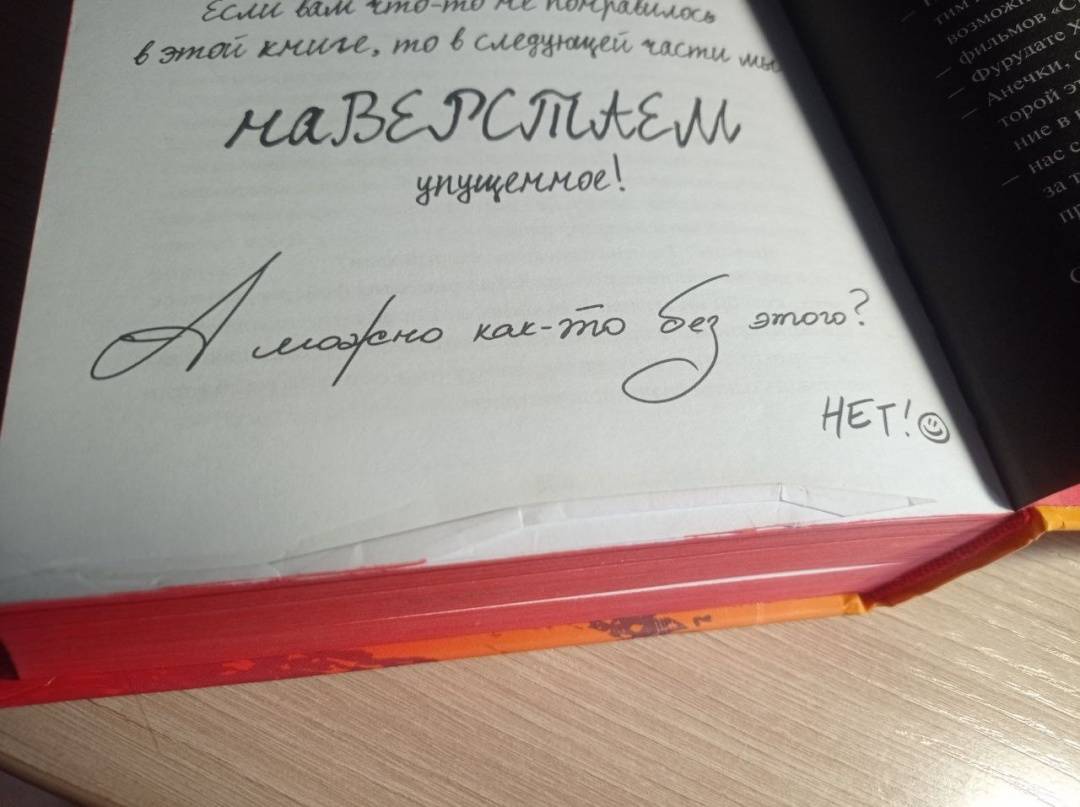 Если вам что-то не понравилось
в этой книге, то в следующей части мы
наВЕРСТАЕМ
упущенное!
А можно как-то без этого?
НЕТ!☺
тим
возможн
— фильмов «С
— Фурудате Х
— Анечки,
торой э
ние в
— нас с
за т
пр